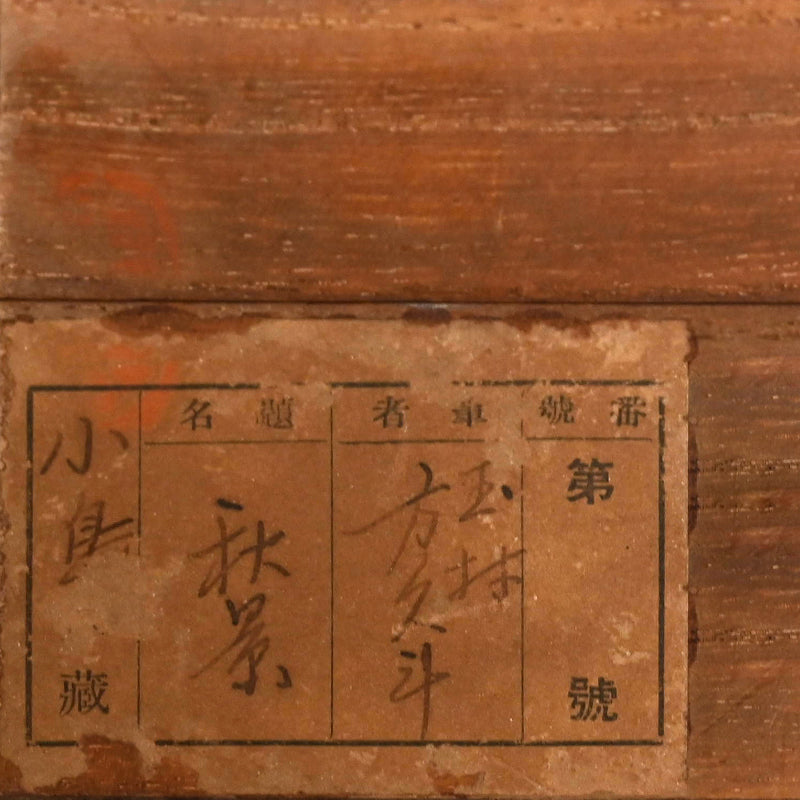 番號
第 號
筆者
玉林
方久斗
題名
秋景
小島 藏